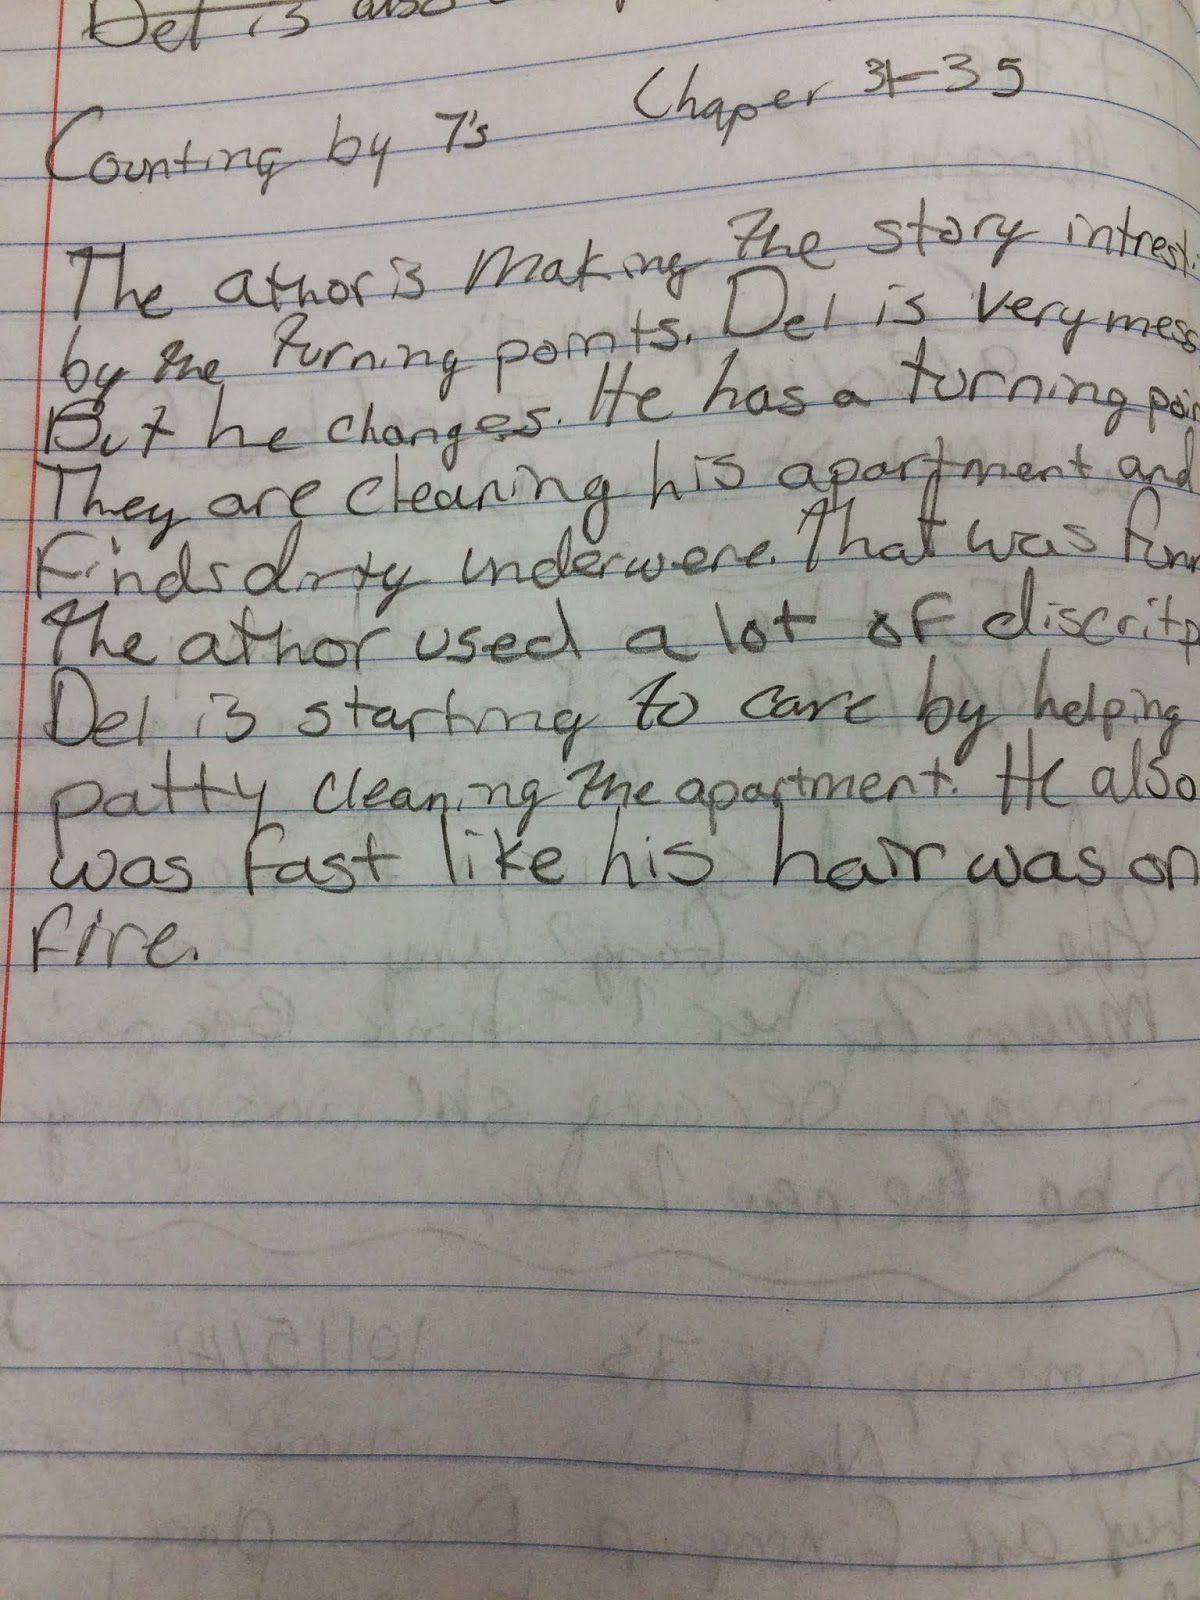 Del is also
Counting by 7's Chaper 31-35
The athor is making the story intrest
by the turning points. Del is very mess
But he changes. He has a turning poin
They are cleaning his apartment and
Finds dirty underwere. That was funn
The athor used a lot of discritp
Del is starting to care by helping
patty cleaning the apartment. He also
was fast like his hair was on
fire.